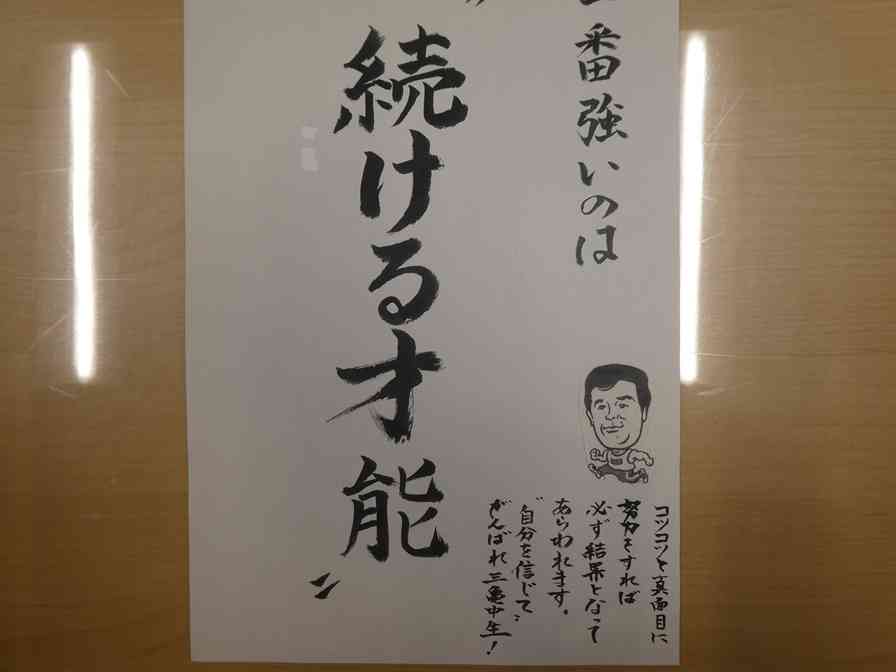 一番強いのは
〝続ける才能〟
コツコツと真面目に
努力をすれば
必ず結果となって
あらわれます。
〝自分を信じて〟
がんばれ三亀中生!